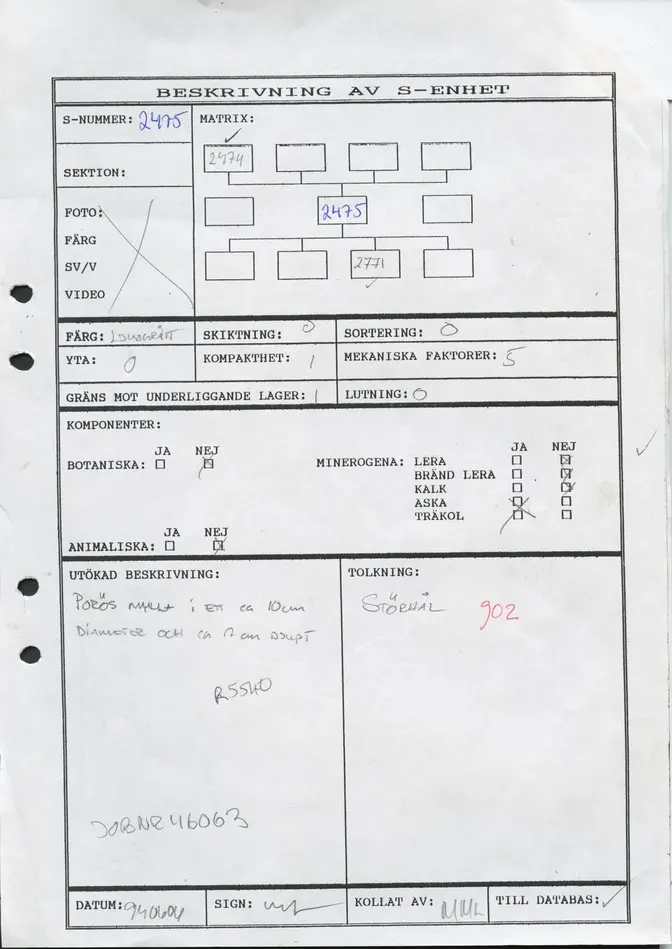 BESKRIVNING AV S-ENHET
S-NUMMER: 2475
MATRIX:
2474
SEKTION:
FOTO:
2475
FÄRG
SV/V
2771
VIDEO
FÄRG:
SKIKTNING: 0
SORTERING: 0
YTA: 0
KOMPAKTHET: 1
MEKANISKA FAKTORER: 5
GRÄNS MOT UNDERLIGGANDE LAGER: 1
LUTNING: 0
KOMPONENTER:
JA NEJ
BOTANISKA:
JA NEJ
MINEROGENA: LERA
BRÄND LERA
KALK
ASKA
TRÄKOL
JA NEJ
ANIMALISKA:
UTÖKAD BESKRIVNING:
PORÖS MYLLA i ETT ca 10cm
DIAMETER OCH ca 17 cm DJUPT
R5540
JOBNR 46063
TOLKNING:
STÖRHÅL 902
DATUM: 940604
SIGN:
KOLLAT AV:
TILL DATABAS: